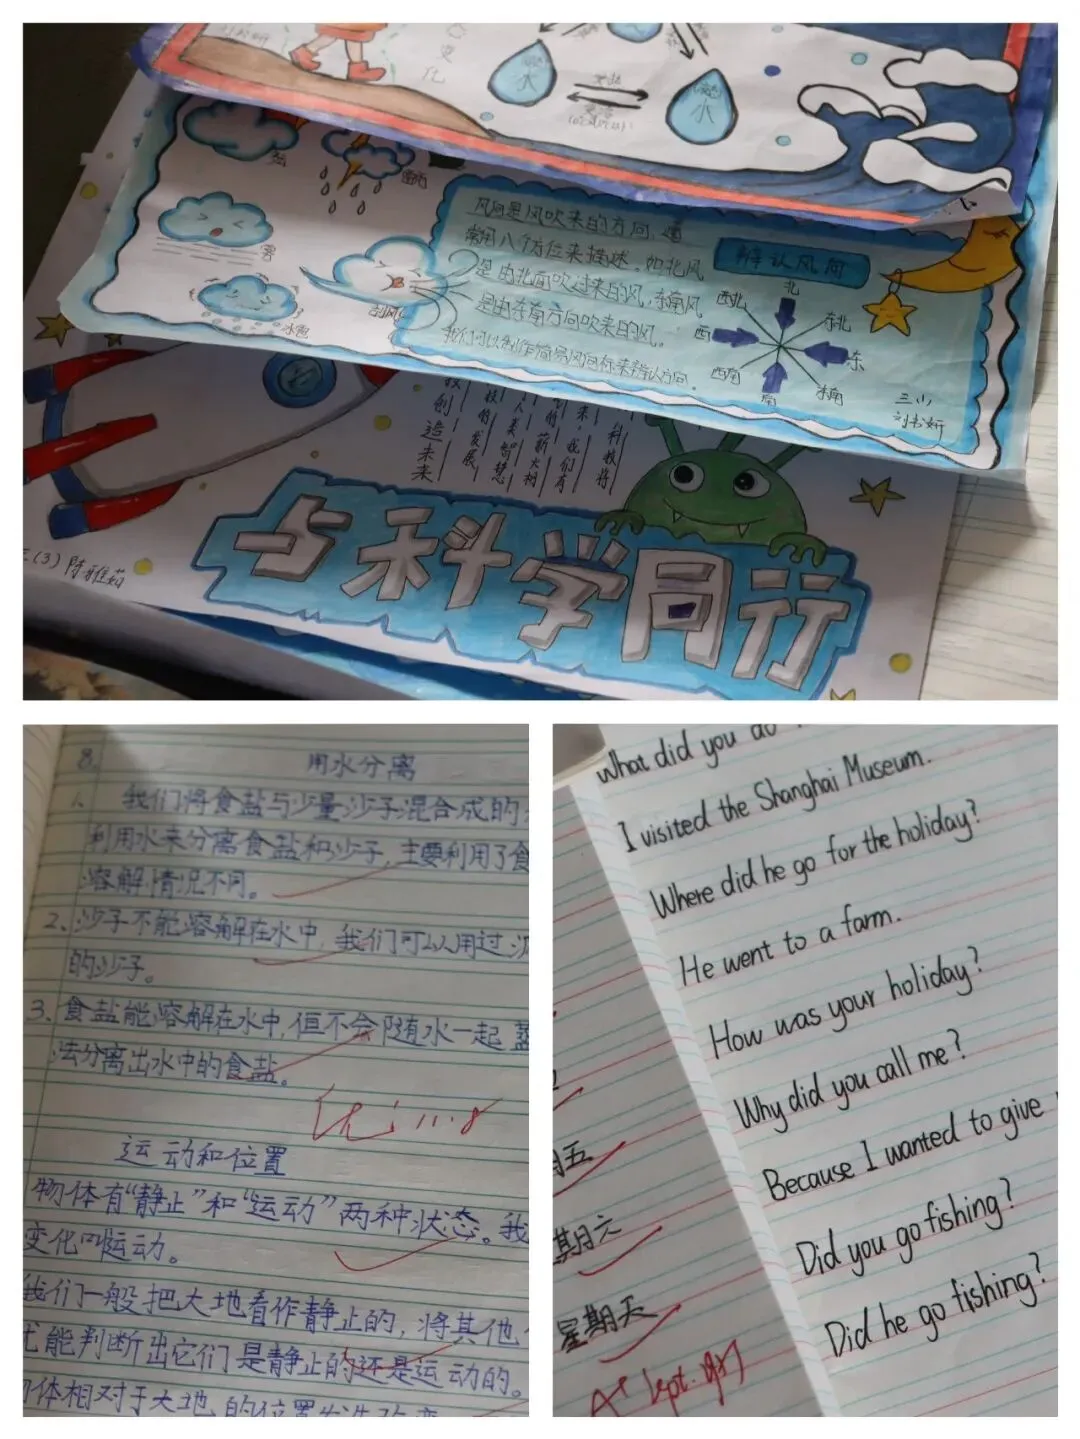 变
化
水
水
雷雨
雾
冰雹
刮风
风向是风吹来的方向,通
常用八个方位来描述。如北风
是由北面吹过来的风,东南风
是由东南方向吹来的风。
我们可以制作简易风向标来辨认方向。
辨认风向
北
西北
东北
西
东
西南
东南
南
三、小
刘书妍
创造未来
的发展
人类智慧
的薪火相
我们有
科技将
(3)陈雅茹
与科学同行
8.
用水分离
1、我们将食盐与少量沙子混合成的
利用水来分离食盐和沙子,主要利用了食
溶解情况不同。
2、沙子不能溶解在水中,我们可以用过
的沙子。
3、食盐能溶解在水中,但不会随水一起蒸
法分离出水中的食盐。
优 11.8
运动和位置
物体有“静止”和“运动”两种状态。我
变化叫运动。
我们一般把大地看作静止的,将其他
能判断出它们是静止的还是运动的。
体相对于大地的位置发生改变
What did you do
I visited the Shanghai Museum.
Where did he go for the holiday?
He went to a farm.
How was your holiday?
Why did you call me?
Because I wanted to give
Did you go fishing?
Did he go fishing?
五
期六
星期天
A+